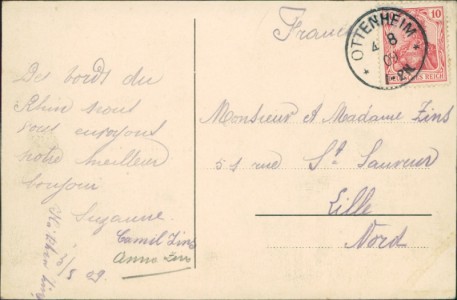 France
OTTENHEIM
4 8
09
1-2N.
10
REICH
Des bords du
Rhin nous
vous envoyons
notre meilleur
bonjour
Suzanne
Camil Zins
Anna Zins
8 09
Monsieur et Madame Zins
51 rue St Sauveur
Lille
Nord